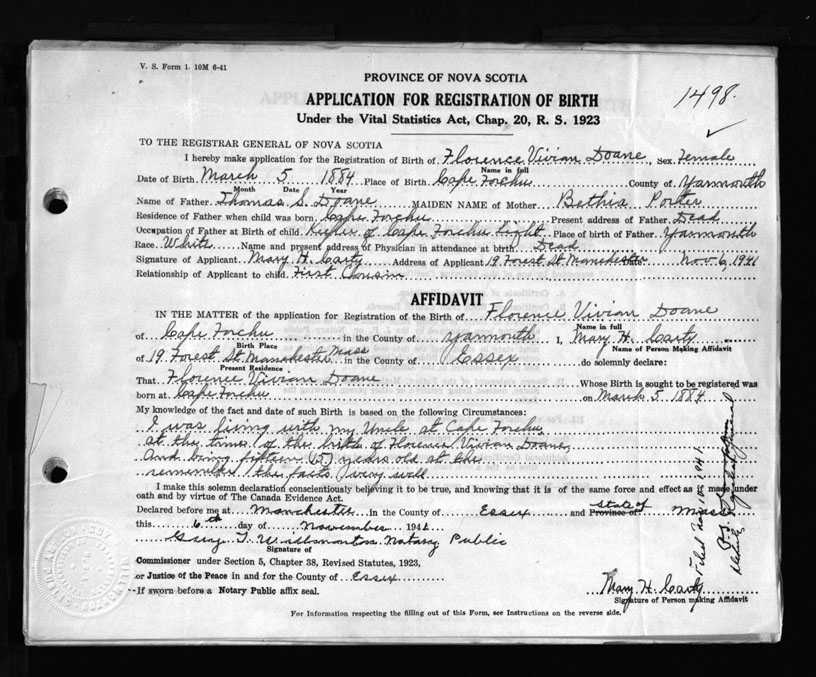 V. S. Form 1. 10M 6-41
PROVINCE OF NOVA SCOTIA
APPLICATION FOR REGISTRATION OF BIRTH
1498.
Under the Vital Statistics Act, Chap. 20, R. S. 1923
TO THE REGISTRAR GENERAL OF NOVA SCOTIA
I hereby make application for the Registration of Birth of Florence Vivian Doane, Sex Female
Name in full
Date of Birth March 5 1884 Place of Birth Cape Forchu County of Yarmouth
Month Date Year
Name of Father Thomas S. Doane MAIDEN NAME of Mother Bethia Porter
Residence of Father when child was born Cape Forchu Present address of Father Dead
Occupation of Father at Birth of child Keeper of Cape Forchu Light Place of birth of Father Yarmouth
Race White Name and present address of Physician in attendance at birth Dead
Signature of Applicant Mary H. Carty Address of Applicant 19 Forest St Manchester Date Nov 6, 1941
Relationship of Applicant to child First Cousin
AFFIDAVIT
IN THE MATTER of the application for Registration of the Birth of Florence Vivian Doane
Name in full
of Cape Forchu in the County of Yarmouth I, Mary H. Carty
Birth Place Name of Person Making Affidavit
of 19 Forest St Manchester Mass in the County of Essex do solemnly declare:
Present Residence
That Florence Vivian Doane Whose Birth is sought to be registered was
born at Cape Forchu on March 5 1884
My knowledge of the fact and date of such Birth is based on the following Circumstances:
I was living with my Uncle at Cape Forchu
at the time of the birth of Florence Vivian Doane,
And being fifteen (15) years old at the
remember the facts very well
I make this solemn declaration conscientiously believing it to be true, and knowing that it is of the same force and effect as if made under
oath and by virtue of The Canada Evidence Act.
Declared before me at Manchester in the County of Essex and State of Province of Mass
this 6th day of November 1941
Notary Public
Signature of
Commissioner under Section 5, Chapter 38, Revised Statutes, 1923,
or Justice of the Peace in and for the County of Essex
If sworn before a Notary Public affix seal.
Mary H. Carty
Signature of Person making Affidavit
For Information respecting the filling out of this Form, see Instructions on the reverse side.